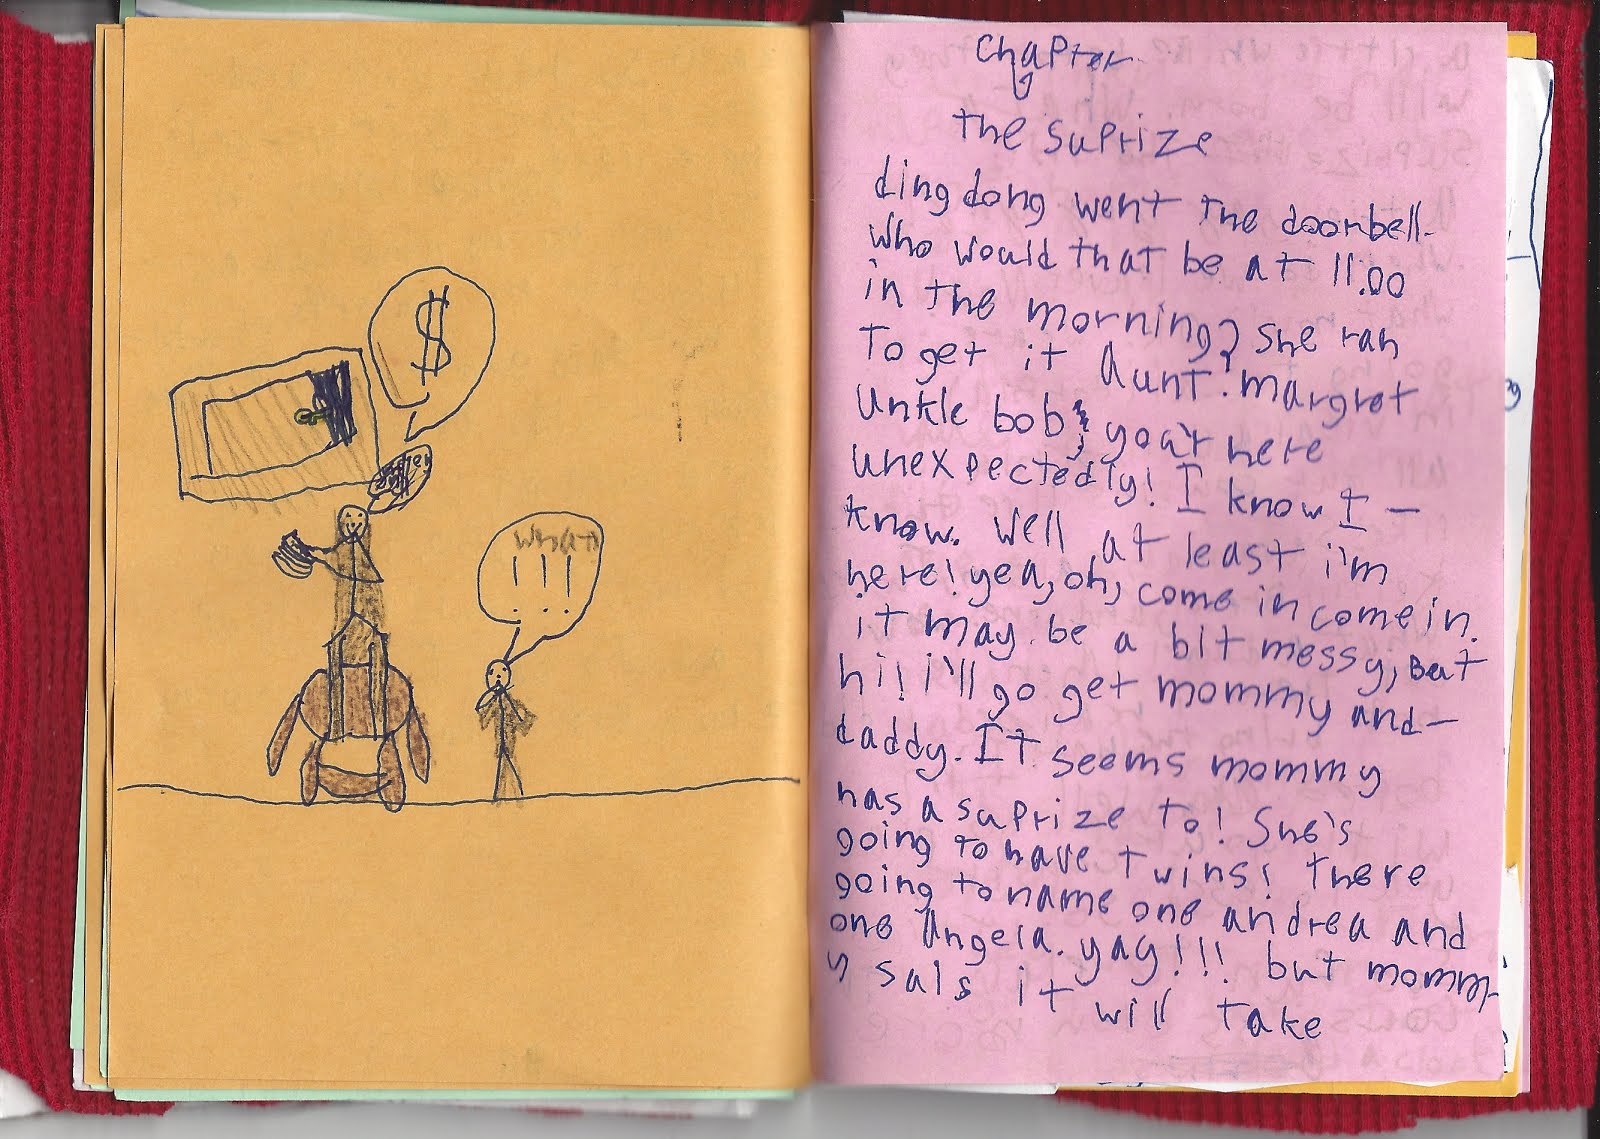 $
what
!!!
Chapter
the suprize
ding dong went the doorbell.
who would that be at 11:00
in the morning? She ran
To get it Aunt margret
Unkle bob, your here
unexpectedly! I know I –
know. Well at least i'm
here! yea, oh, come in come in.
it may be a bit messy, But
hi! i'll go get mommy and –
daddy. It seems mommy
has a suprize to! She's
going to have twins! there
going to name one andrea and
one Angela. yay!!! but momm-
y sais it will take